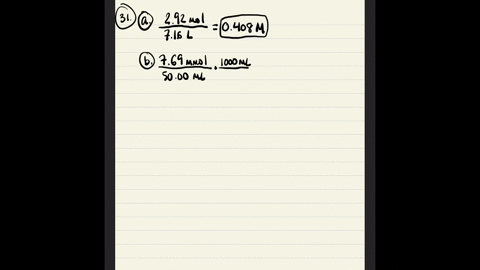 31. a. 2.92 mol / 7.16 L = 0.408 M
b. 7.69 mmol / 50.00 mL • 1000 mL